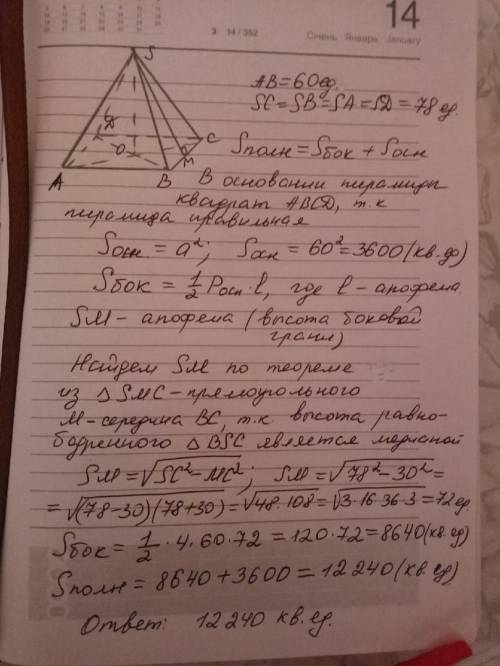 14
3 14 / 352
Січень · Январь · January
S
Д
C
O
M
A
B
AB = 60 ед.
SC = SB = SA = SД = 78 ед.
Sполн = Sбок + Sосн
В основании пирамиды
квадрат ABCД, т.к
пирамида правильная
Sосн. = a²; Sосн = 60² = 3600 (кв. ед)
Sбок = 1/2 Pосн · l, где l - апофема.
SM - апофема (высота боковой
грани)
Найдем SM по теореме
из △ SMC - прямоугольного
M - середина BC, т.к. высота равно-
бедренного △ BSC является медианой
SM = √SC² - MC²; SM = √78² - 30² =
= √(78-30)(78+30) = √48 · 108 = √3 · 16 · 36 · 3 = 72 ед.
Sбок = 1/2 · 4 · 60 · 72 = 120 · 72 = 8640 (кв. ед)
Sполн = 8640 + 3600 = 12 240 (кв. ед)
Ответ: 12 240 кв. ед.